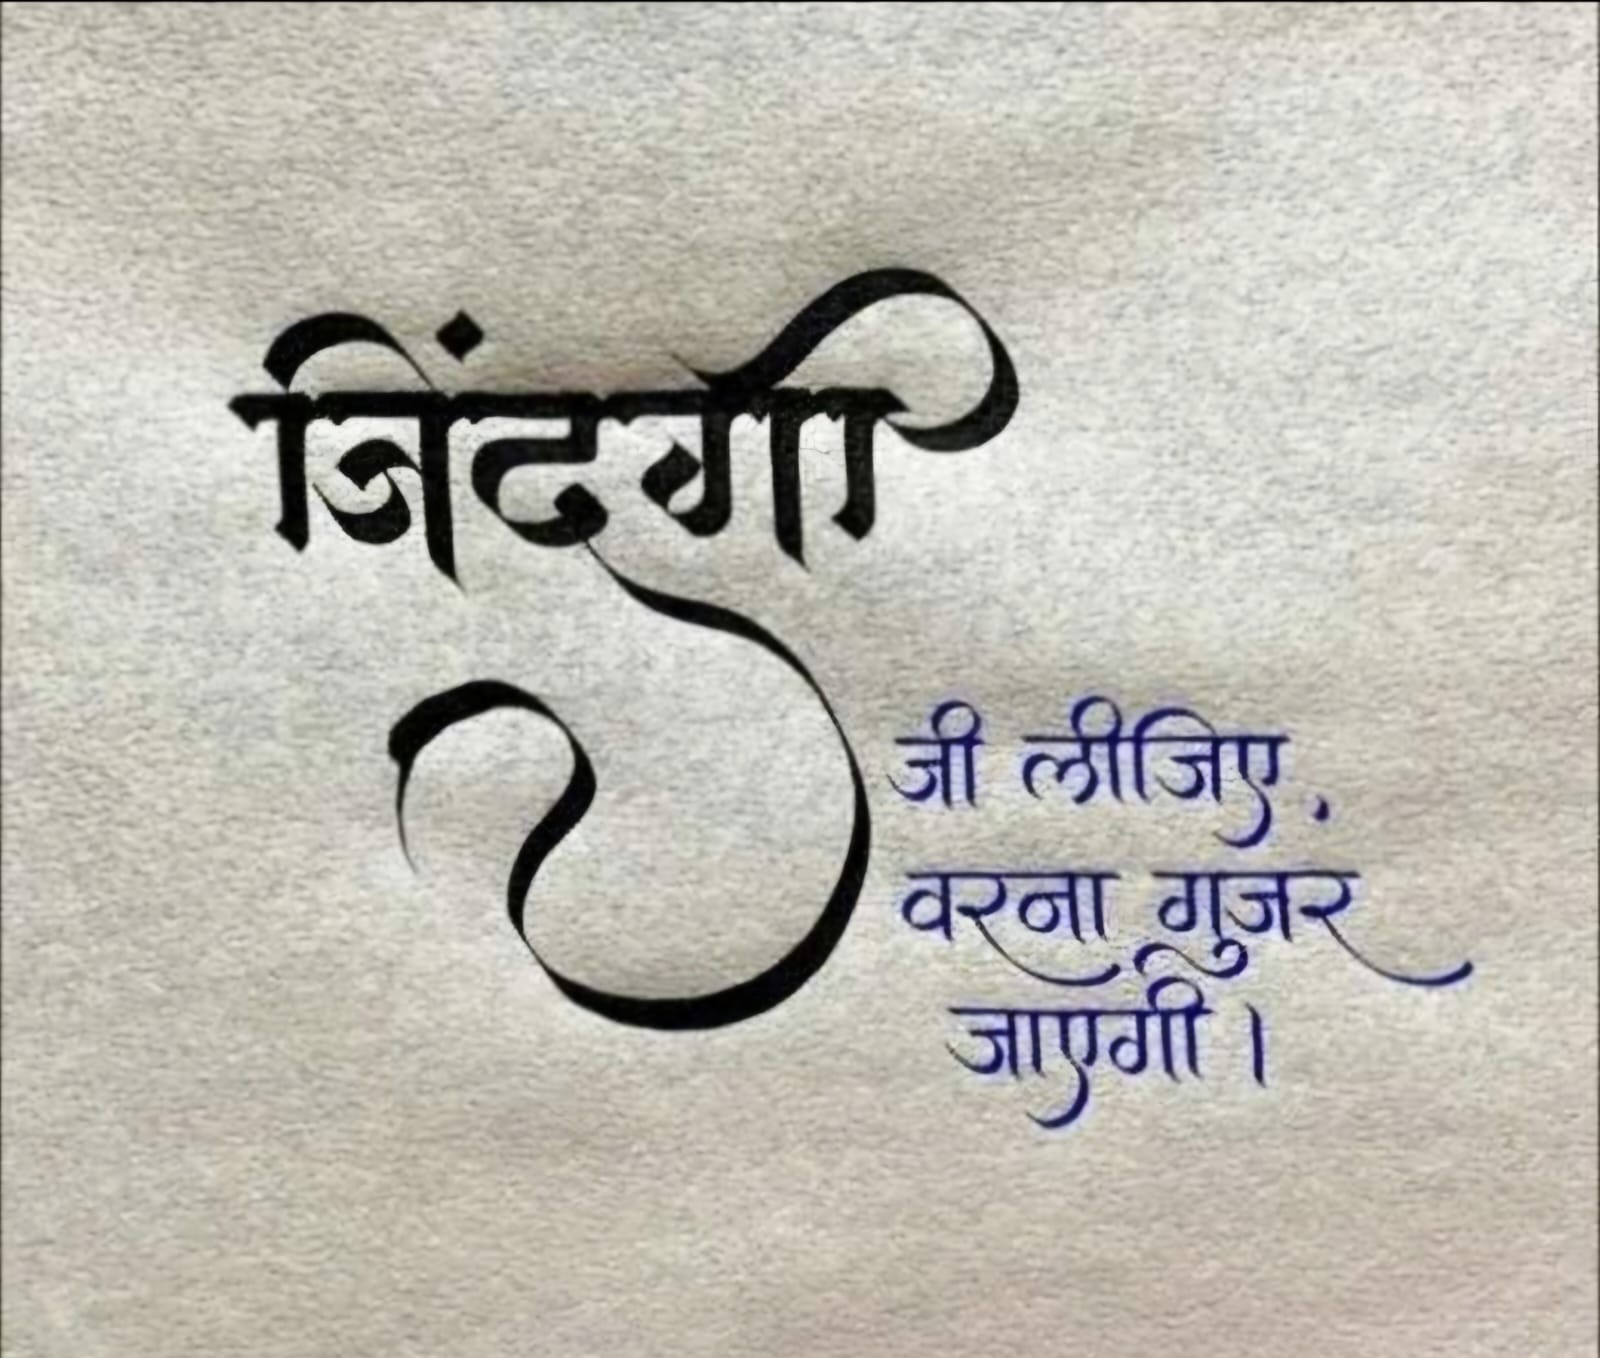 जिंदगी
जी लीजिए,
वरना गुजर
जाएगी ।